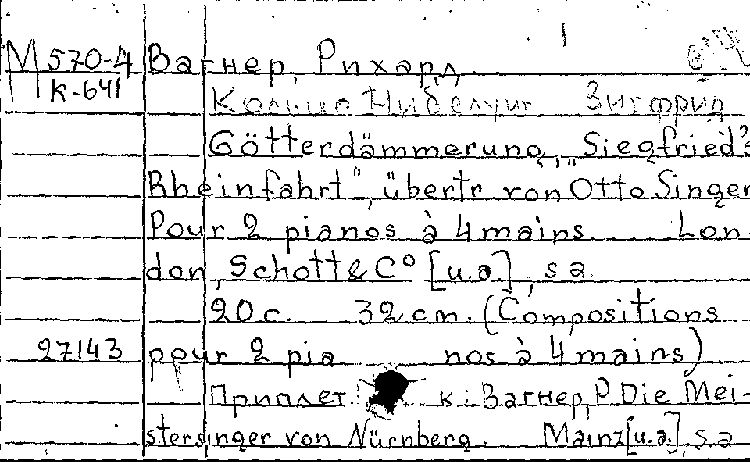 1
М 570-4 Вагнер, Рихард
К-641
Кольцо Нибелунг Зигфрид
Götterdämmerung, „Siegfried's
Rheinfahrt", übertr von Otto Singer
Pour 2 pianos à 4 mains Lon-
don, Schott & C° [u. a.], s a.
20 c. 32 cm. (Compositions
27143 pour 2 pia nos à 4 mains)
Приплет. к: Вагнер, Р. Die Mei-
stersinger von Nürnberg. Mainz [u. a.], s a